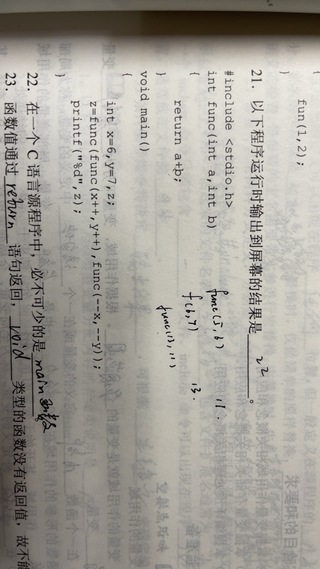 fun(1,2);
}
21. 以下程序运行时输出到屏幕的结果是 22 。
#include <stdio.h>
int func(int a,int b) func(5,6) 11.
{ f(6,7) 13.
return a+b; func(13,11)
}
void main()
{
int x=6,y=7,z;
z=func(func(x++,y++),func(--x,--y));
printf("%d",z);
}
22. 在一个 C 语言源程序中，必不可少的是 main函数
23. 函数值通过 return 语句返回， void 类型的函数没有返回值，故不能